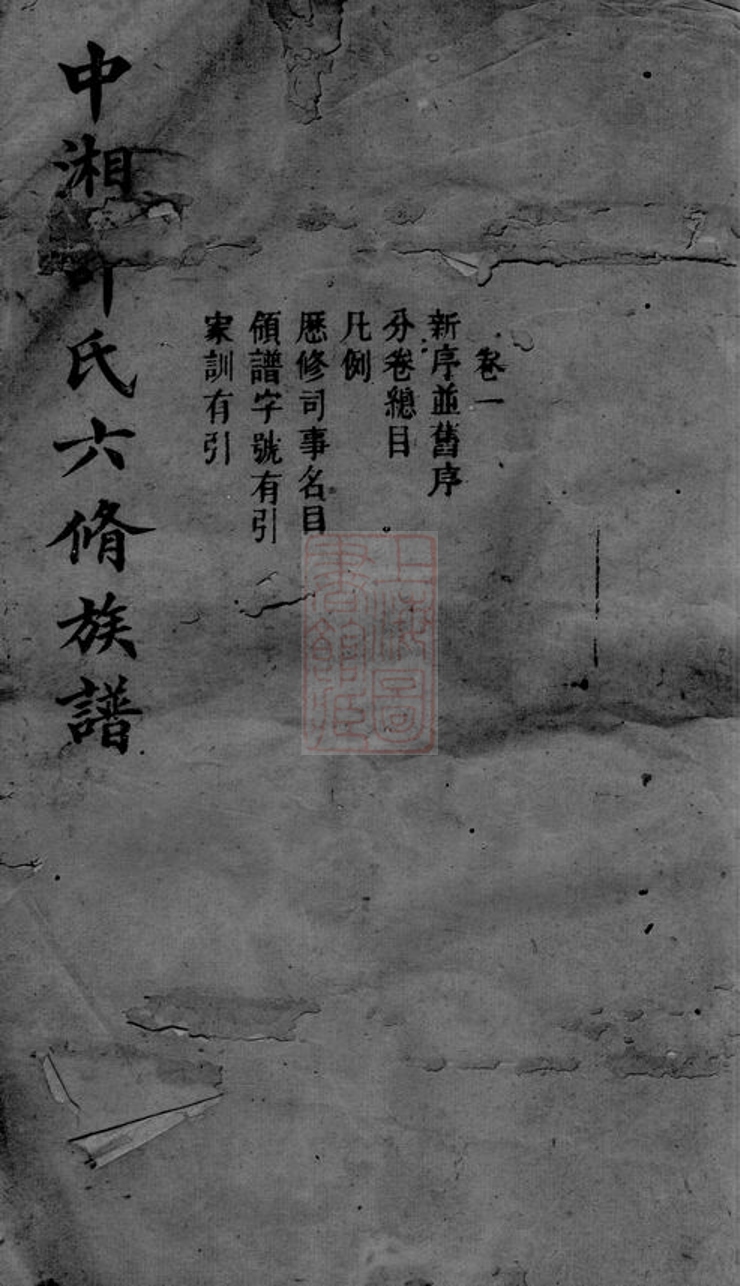 卷一
新序並舊序
分卷總目
凡例
歷修司事名目
領譜字號有引
家訓有引
中湘氏六脩族譜
上海圖
書館藏